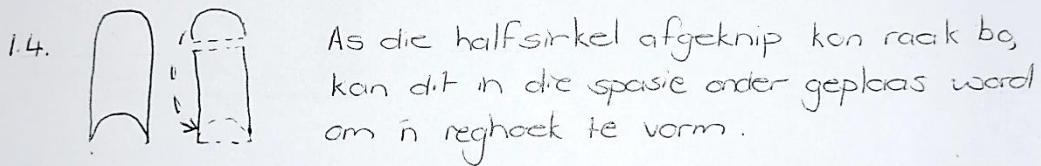 1.4. As die halfsirkel afgeknip kon raak bo,
kan dit in die spasie onder geplaas word
om 'n reghoek te vorm.